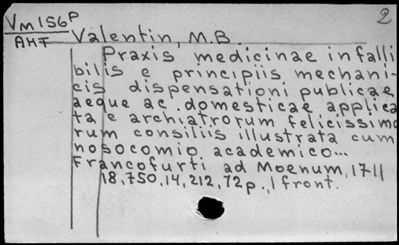 Vm156P 2
AHF Valentin, M.B
Praxis medicinae infalli
bilis e principiis mechani-
cis dispensationi publicae
aeque ac domesticae applica
ta e archiatrorum felicissimo
rum consiliis illustrata cum
nosocomio academico...
Francofurti ad Moenum, 1711
18,750,14,212,72p.,1 front.